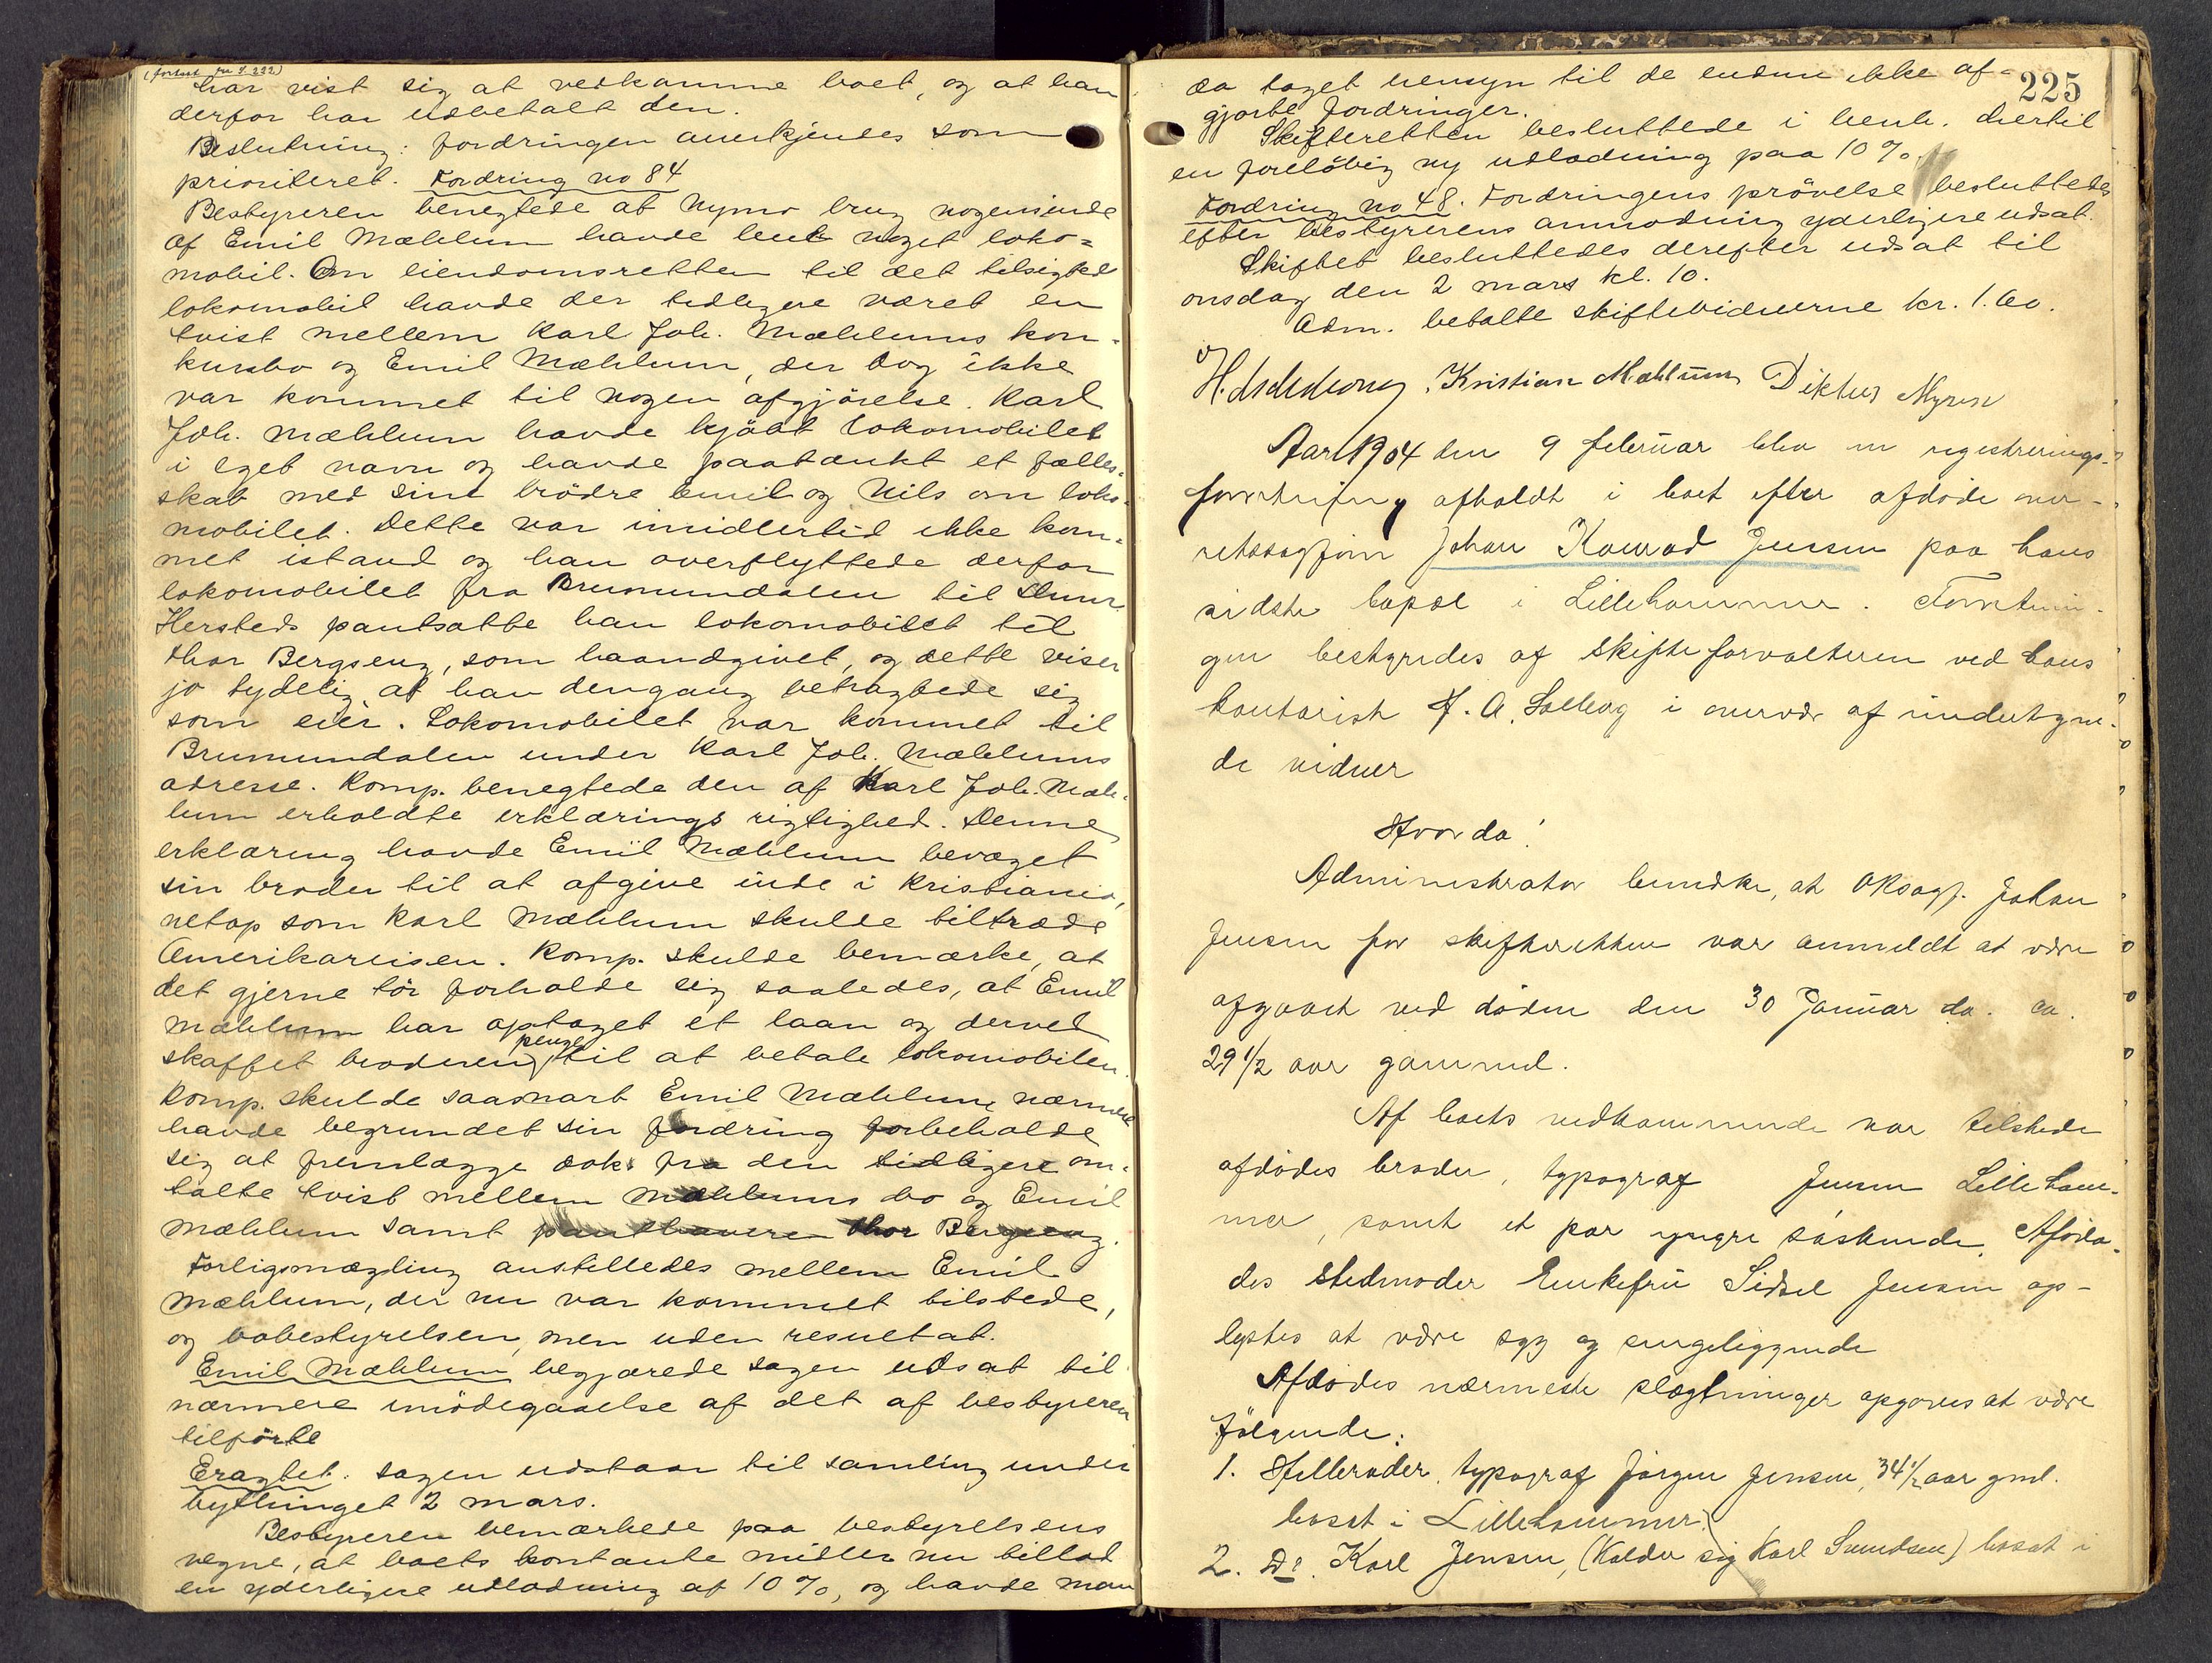 (fortsat fra s. 222)
har vist sig at vedkomme boet, og at han
derfor har udbetalt den.
Beslutning: fordringen anerkjendes som
prioriteret. Fordring no 84
Bestyreren benegtede at Nymo brug nogensinde
af Emil Mæhlum havde leiet noget loko=
mobil. Om eiendomsretten til det tilsigtede
lokomobil havde der tidligere været en
tvist mellem Karl Joh. Mæhlums kon-
kursbo og Emil Mæhlum, der dog ikke
var kommet til nogen afgjörelse. Karl
Joh. Mæhlum havde kjöbt lokomobilet
i eget navn og havde paatænkt et fælles-
skab med sine brödre Emil og Nils om loko-
mobilet. Dette var imidlertid ikke kom-
met istand og han overflyttede derfor
lokomobilet fra Brumundalen til
Hersteds pantsatte han lokomobilet til
Thor Bergseng, som haandgivet, og dette viser
jo tydelig at han dengang betragtede sig
som eier. Lokomobilet var kommet til
Brumundalen under Karl Joh. Mæhlums
adresse. Komp. benegtede den af Karl Joh. Mæh-
lum erholdte erklærings rigtighed. Denne
erklæring havde Emil Mæhlum bevæget
sin broder til at afgive inde i Kristiania,
netop som Karl Mæhlum skulde tiltræde
Amerikareisen. Komp. skulde bemærke, at
det gjerne tör forholde sig saaledes, at Emil
Mæhlum har optaget et laan og derved
skaffet broderen penge til at betale lokomobilen.
Komp. skulde saasnart Emil Mæhlum nærmere
havde begrundet sin fordring forbeholde
sig at fremlægge dok. fra den tidligere om-
talte tvist mellem Mæhlums bo og Emil
Mæhlum samt panthaveren Thor Bergseng.
Forligsmægling anstilledes mellem Emil
Mæhlum, der nu var kommet tilstede,
og bobestyrelsen, men uden resultat.
Emil Mæhlum begjærede sagen udsat til
nærmere imödegaaelse af det af bestyreren
tilförte
Eragtet: sagen udstaar til samling under
bythinget 2 mars.
Bestyreren bemærkede paa bestyrelsens
vegne, at boets kontante midler nu tillod
en yderligere udlodning af 10%, og havde man
225
da taget hensyn til de endnu ikke af-
gjorte fordringer.
Skifteretten besluttede i henh. hertil
en foreløbig ny udlodning paa 10%.
Fordring no 48. Fordringens prövelse besluttedes
efter bestyrerens anmodning yderligere udsat.
Skiftet besluttedes derefter udsat til
onsdag den 2 mars kl. 10.
Adm. betalte skiftevidnerne kr. 1.60.
Kristian Mæhlum Dikteus Myren
Aar 1904 den 9 februar blev en registrerings-
forretning afholdt i boet efter afdøde over-
retssagfører Johan Konrad Jensen paa hans
sidste bopæl i Lillehammer. Forretnin-
gen bestyredes af skifteforvalteren ved hans
kontorist H. A. Solberg i overvær af undertegne-
de vidner
Hvorda!
Administrator bemerkte, at Oksagf. Johan
Jensen for skifteretten var anmeldt at være
afgaaet ved døden den 30 Januar da. ca.
29 1/2 aar gammel.
Af boets vedkommende var tilstede
afdødes broder, typograf Jensen Lilleham-
mer, samt et par yngre søskende. Afdø-
des stedmoder Enkefru Sidsel Jensen op-
lystes at være syg og sengeliggende
Afdødes nærmeste slægtninger opgaves at være
følgende:
1. Helbroder, typograf Jørgen Jensen, 34 1/2 aar gml.
bosat i Lillehammer.
2. Do. Karl Jensen, (Kalder sig Karl Svendsen) bosat i